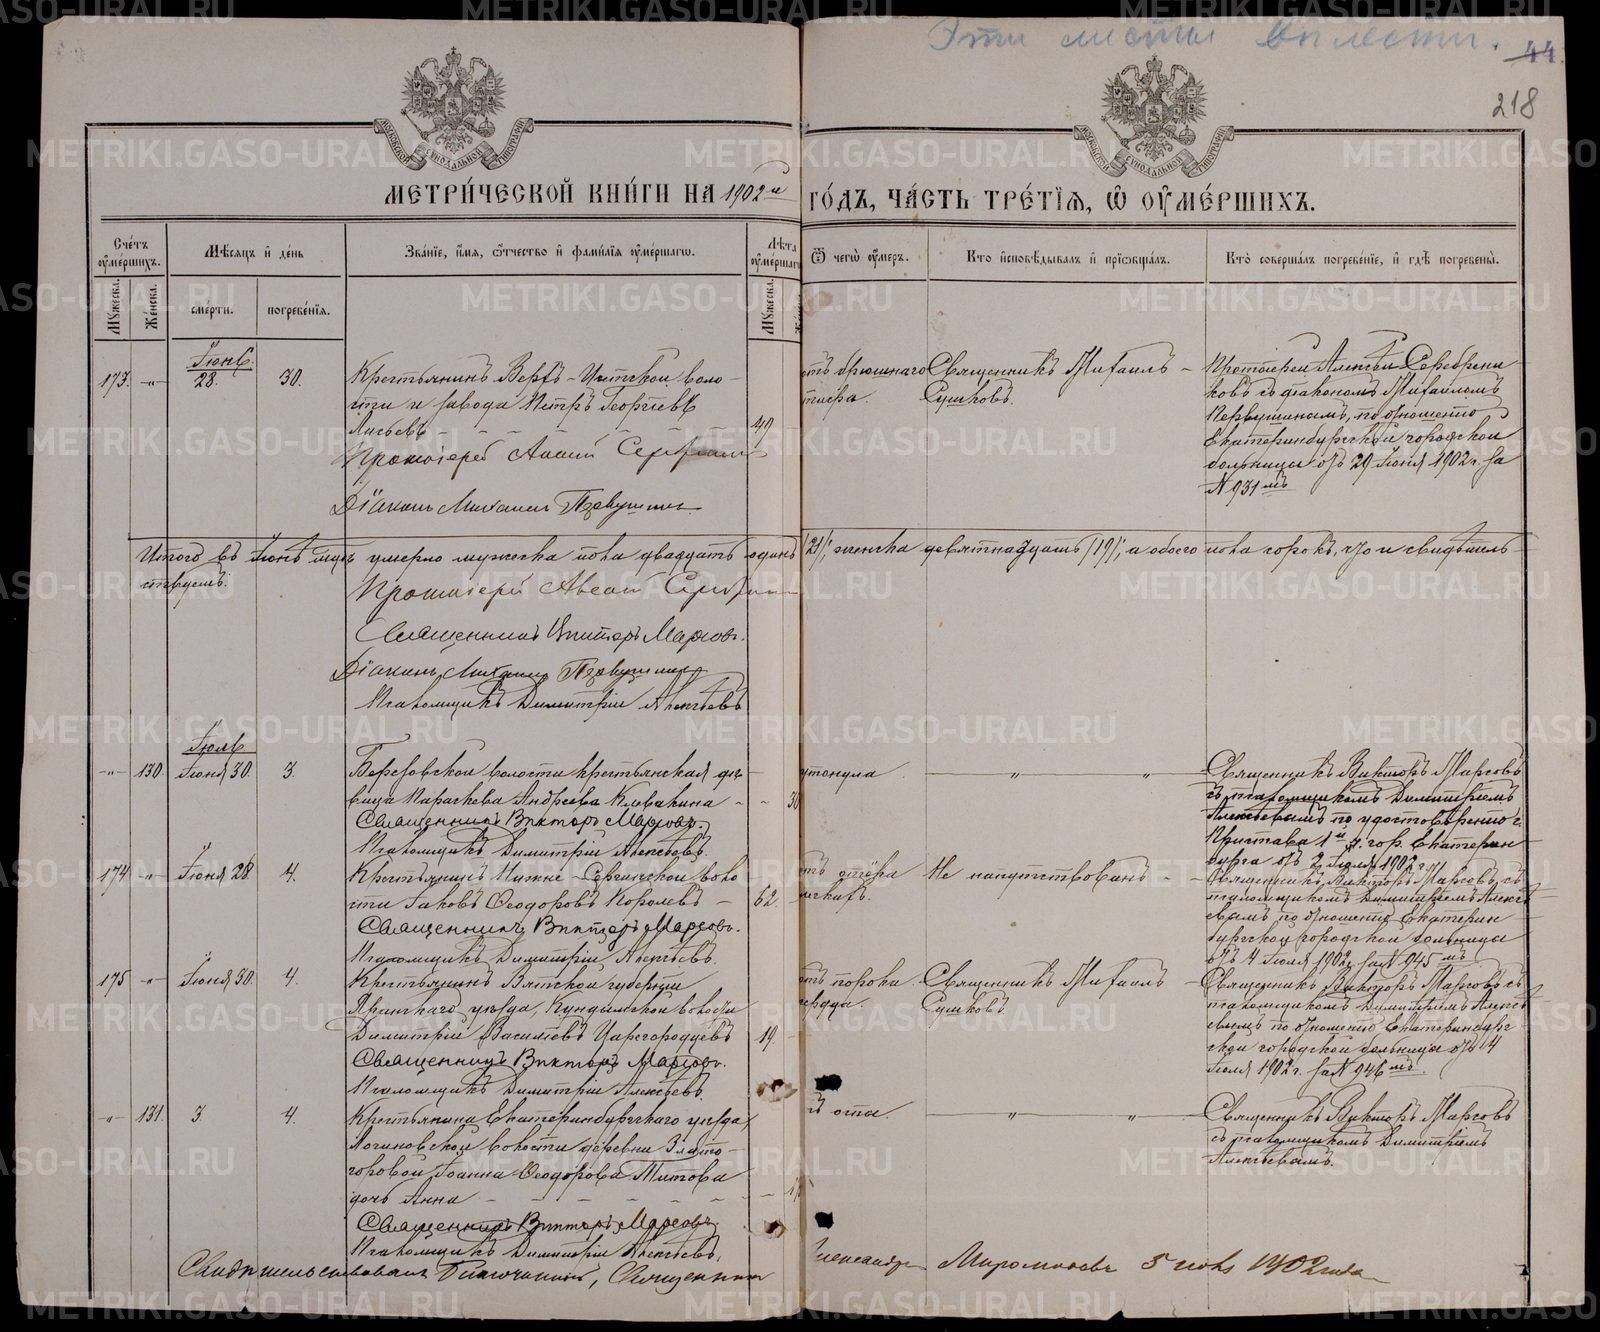 Эти листы вплести.
44
218
МЕТРИ́ЧЕСКОЙ КНИ́ГИ НА 1902 й
ГО́ДЪ, ЧА́СТЬ ТРЕ́ТІѦ, Ѡ҆ ОУ҆МЕ́РШИХЪ.
Сче́тъ оу҆ме́ршихъ.
Мꙋжеска.
Же́нска.
Мѣ́сѧцъ и҆ де́нь
сме́рти.
погребе́нїѧ.
Зва́нїе, и҆́мѧ, ѻ҆́тчество и҆ фами́лїѧ оу҆ме́ршагѡ.
Лѣ́та оу҆ме́ршагѡ
Мꙋжеска.
Ѿ чегѡ̀ оу҆́меръ.
Кто̀ и҆сповѣ́дывалъ и҆ прїѡбща́лъ.
Кто̀ соверша́лъ погребе́нїе, и҆ гдѣ̀ погребены̀.
Іюнь
173. -"- 28. 30.
Крестьянинъ Верхъ-Исетской воло-
сти и завода Петръ Георгіевъ
49
Протоіерей
Діаконъ Михаилъ Первушинъ.
отъ брюшного
тифа.
Священникъ Михаилъ -
Сушковъ.
Протоіерей Алексѣй Серебрени
ковъ съ діакономъ Михаиломъ
Первушинымъ, по отношенію
Екатеринбургской городской
больницы отъ 29 Іюня 1902 г. за
№ 931 мъ
Итого въ Іюнѣ мцѣ умерло мужеска пола двадцать одинъ /21/; женска девятнадцать /19/; а обоего пола сорокъ, что и свидѣтель-
ствуемъ:
Протоіерей
Священникъ Викторъ Марсовъ.
Діаконъ Михаилъ Первушинъ
Псаломщикъ Димитрій Алексѣевъ
Іюль
-"- 130. Іюня 30. 3.
Березовской волости крестьянская дѣ-
вица Параскева Андреева Клевакина - -
Священникъ Викторъ Марсовъ.
Псаломщикъ Димитрій Алексѣевъ.
утонула
Священникъ Викторъ Марсовъ
съ псаломщикомъ Димитріемъ
Алексѣевымъ по удостовѣренію г.
Пристава 1 й ч. гор. Екатерин
бурга отъ 2 Іюля 1902 г.
174 -"- Іюня 28. 4.
Крестьянинъ Нижне-Сергинской воло
сти Іаковъ Ѳеодоровъ Королевъ -
62
Священникъ Викторъ Марсовъ.
Псаломщикъ Димитрій Алексѣевъ.
отъ отёка
легкихъ.
Не напутствованъ -
Священникъ Викторъ Марсовъ съ
псаломщикомъ Димитріемъ Алексѣ
евымъ по отношенію Екатерин
бургской городской больницы
отъ 4 Іюля 1902 г. за № 945 мъ
175 -"- Іюня 30. 4.
Крестьянинъ Вятской губерніи
Яранскаго уѣзда, Кундышской волости
Димитрій Васильевъ Царегородцевъ
19
Священникъ Викторъ Марсовъ.
Псаломщикъ Димитрій Алексѣевъ.
отъ порока
сердца.
Священникъ Михаилъ -
Сушковъ.
Священникъ Викторъ Марсовъ съ
псаломщикомъ Димитріемъ Алексѣ
евымъ по отношенію Екатеринбург
ской городской больницы отъ 4
Іюля 1902 г. за № 946 мъ.
-"- 131. 3. 4.
Крестьянина Екатеринбургскаго уѣзда,
Логиновской волости деревни Злато-
горовой Іоанна Ѳеодорова Титова
дочь Анна
Священникъ Викторъ Марсовъ.
Псаломщикъ Димитрій Алексѣевъ.
отъ оспы.
Священникъ Викторъ Марсовъ
съ псаломщикомъ Димитріемъ
Алексѣевымъ.
Свидѣтельствовалъ Благочинный, Священникъ
Александръ Миролюбовъ 5 1902 года
METRIKI.GASO-URAL.RU